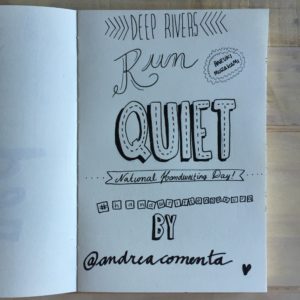 DEEP RIVERS
Run
HARUKI
MURAKAMI
QUIET
National Handwriting Day!
BY
@andreacomenta